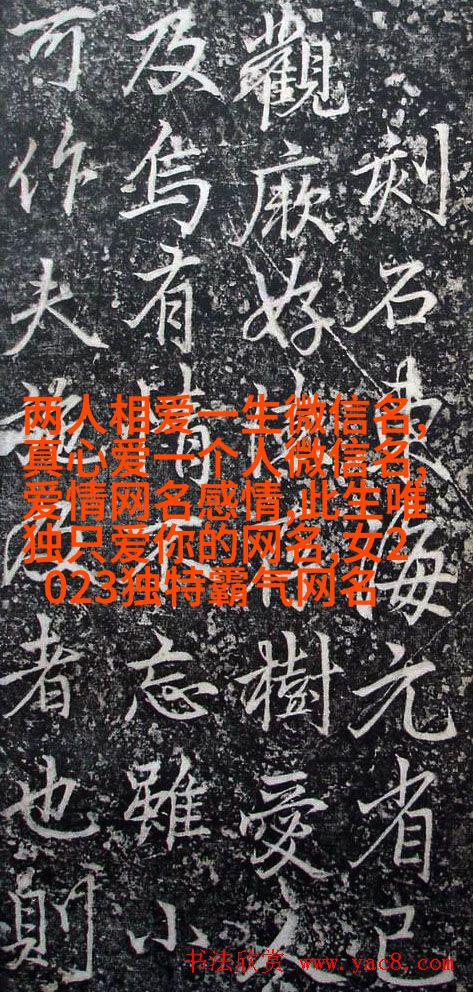 刻石東海元省己
觀厥好樹愛
及烏有情不忘雖小
可作夫施及者也則
两人相爱一生微信名,
真心爱一个人微信名,
爱情网名感情,此生唯
独只爱你的网名,女2
023独特霸气网名
书法欣赏 www.yac8.com